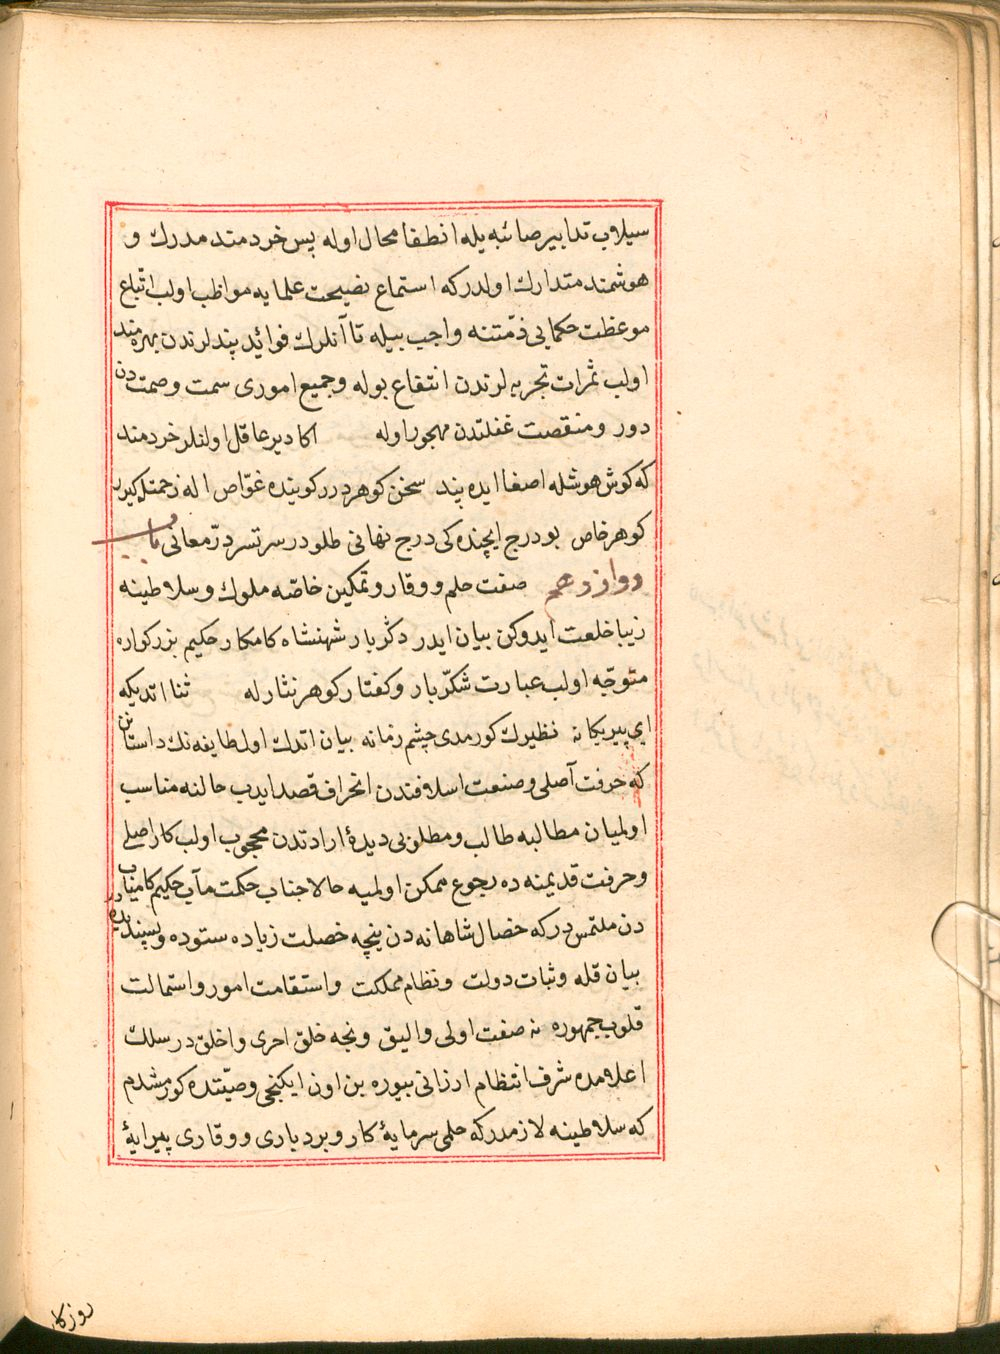 سيلاب تدابير صائبه يله انطفا محال اوله پس خردمند مدرك و
هوشمند متدارك اولدركه استماع نصيحت علمايه مواظب اولب اتباع
موعظت حكمايى ذمّتنه واجب بيله تا آنلرك فوائد پندلرندن بهره‌مند
اولب ثمرات تجربه لرندن انتفاع بوله و جميع امورى سمت وصمت دن
دور و منقصت غفلتدن مهجور اوله اكا دير عاقل اولنلر خردمند
كه كوش هوشله اصغا ايده پند سخن كوهردر كوينده غوّاص اله زحمتله كيرر
كوهر خاص بو درج ايچنده كى درج نهانى طلودر سرتسر درّ معانى باب
دوازدهم صفت حلم و وقار و تمكين خاصّه ملوك و سلاطينه
زيبا خلعت ايدوكن بيان ايدر دكر بار شهنشاه كامكار حكيم بزركواره
متوجّه اولب عبارت شكّربار و كفتار كوهر نثار له ثنا اتديكه
اى پير يكانه نظيرك كورمدى چشم زمانه بيان اتدك اول طايفه نك داستانن
كه حرفت آصلى و صنعت اسلافندن انحراف قصد ايدب حالنه مناسب
اولميان مطالبه طالب و مطلوبى ديدهٔ ارادتدن محجوب اولب كار اصلى
و حرفت قديمنه ده رجوع ممكن اولميه حالا جناب حكمت مآب حكيم كامياب
دن ملتمسدركه خصال شاهانه دن ينچه خصلت زياده ستوده و پسنديده در
بيان قله و ثبات دولت و نظام مملكت و استقامت امور و استمالت
قلوب جمهوره نه صفت اولى و اليق و نجه خلق احرى و اخلق در سلك
اعلامده شرف انتظام ارزانى بيوره بن اون ايكنجى وصيّتده كورمشدم
كه سلاطينه لازمدركه حلمى سرمايهٔ كار و بردبارى و وقارى پيرايهٔ
روزكار